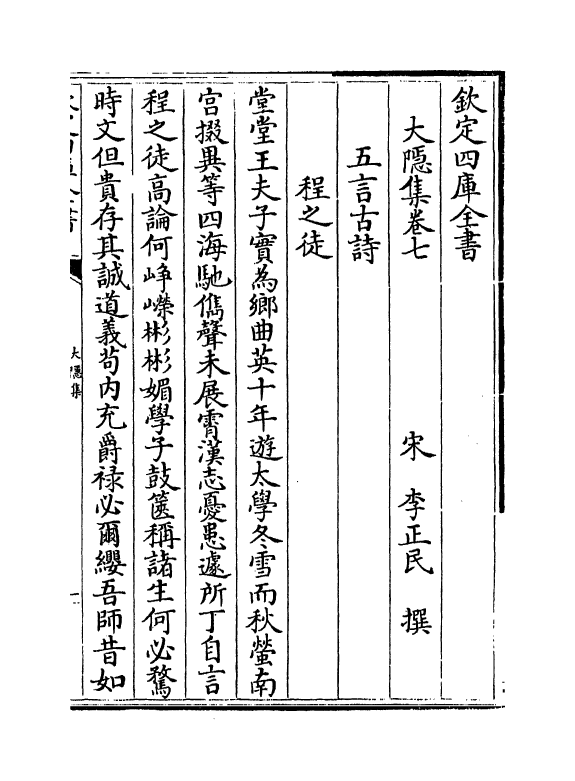 欽定四庫全書
大隠集卷七
宋 李正民 撰
五言古詩
程之徒
堂堂王夫子實為鄉曲英十年遊太學冬雪而秋螢南
宫掇異等四海馳儁聲未展霄漢志憂患遽所丁自言
程之徒高論何崢嶸彬彬媚學子鼓篋稱諸生何必騖
時文但貴存其誠道義茍内充爵禄必爾纓吾師昔如
大隠集
一